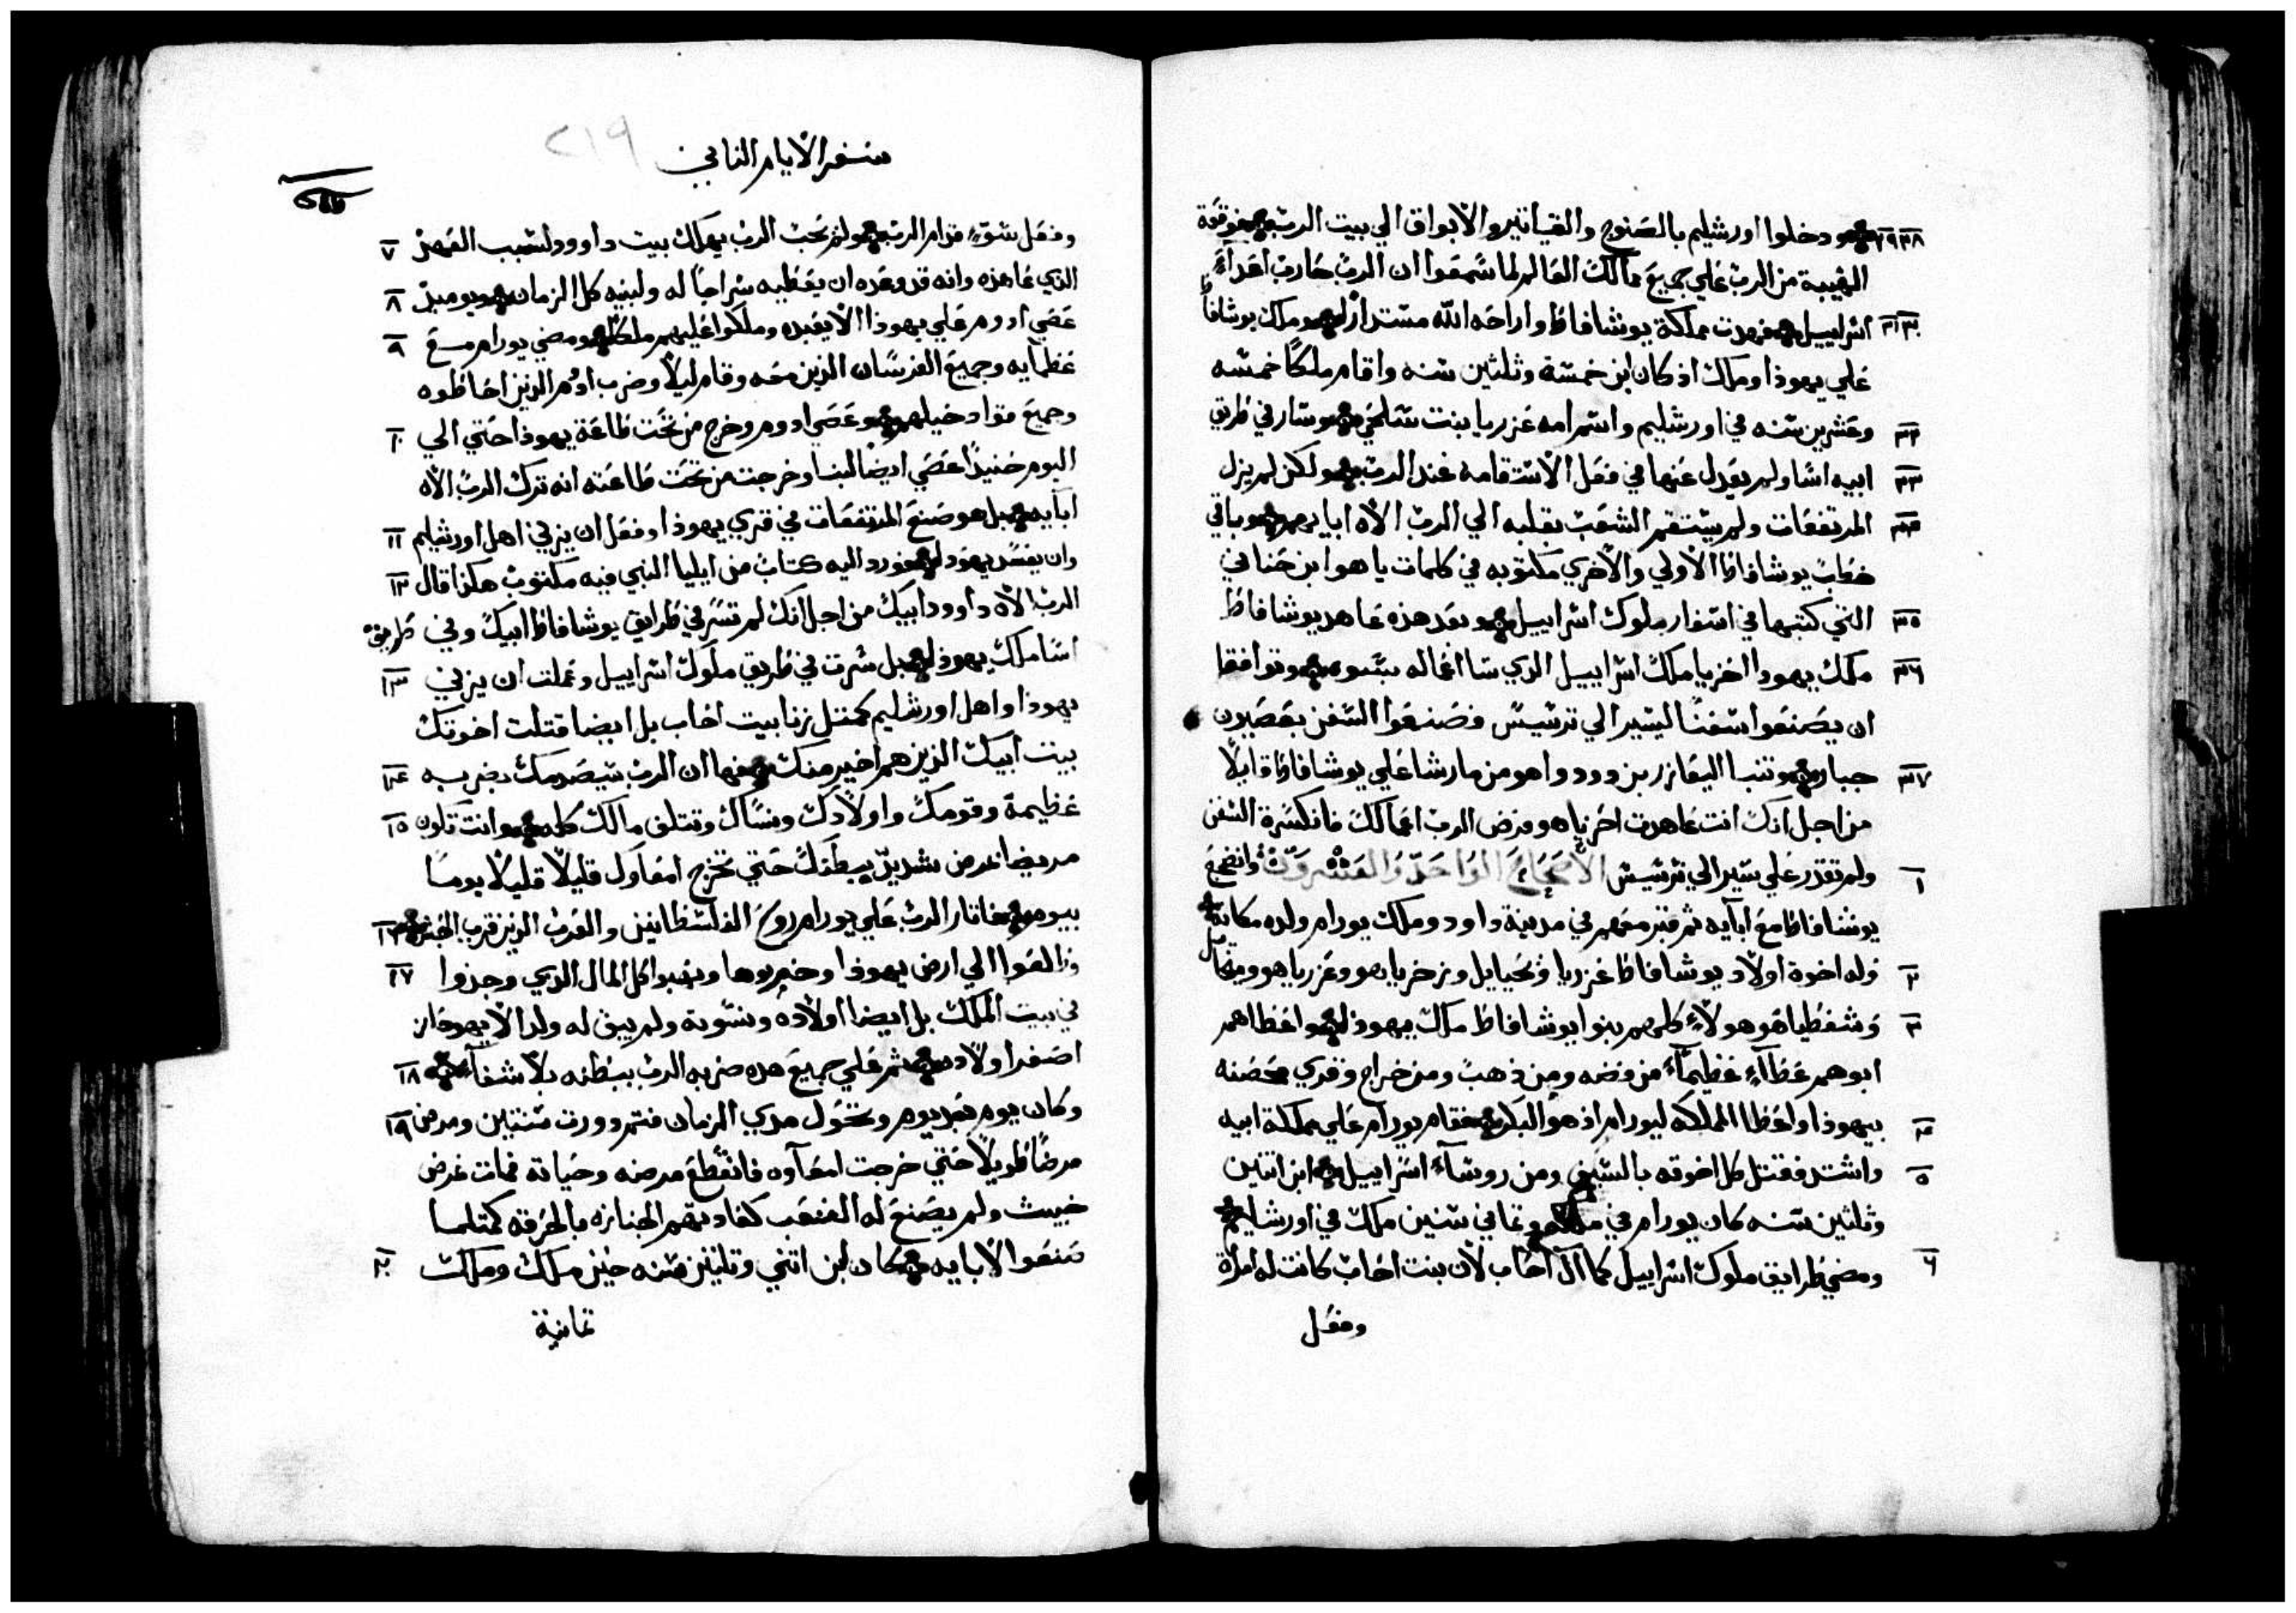 ودخلوا اورشليم بالصنوج والقياتير والابواق الي بيت الرب فوقعة ٢٨ ٢٩
الهيبة من الرب علي جميع ممالك العالم لما سمعوا ان الرب حارب اعداء
اسراييل فهدت مملكة يوشافاظ واراحه الله مستدار وملك يوشافاظ ٣٠ ٣١
علي يهوذا وملك اذ كان ابن خمسة وثلثين سنه واقام ملكا خمسه
وعشرين سنه في اورشليم واسم امه عزريا بنت شلحي وسار في طريق ٣٢
ابيه اسا ولم يعدل عنها في فعل الاستقامه عند الرب ولكن لم يزل ٣٣
المرتفعات ولم يستقم الشعب بقلبه الي الرب الاه اباىهم وباقي ٣٤
خطاب يوشافاظ الاولي والاخري مكتوبه في كلمات ياهوا بن حناني
التي كتبها في اسفار ملوك اسراييل وبعد هذه عاهد يوشافاظ ٣٥
ملك يهودا اخزيا ملك اسراييل الذي سا اعماله بسو وتوافقا ٣٦
ان يصنعوا سفنا لتسير الي ترسيس فصنعوا السفن بعصيون
جبار وتنبا اليعازر بن دودوا هو من مارشا علي يوشافاظ قايلا ٣٧
من اجل انك انت عاهدت اخزياهو فرض الرب اعمالك فانكسرة السفن
ولم تقدر علي سير الي ترسيس الاصحاح الواحد والعشرون وانضجع ١
يوشافاظ مع ابايه ثم قبر معهم في مدينة داود وملك يورام ولده مكانه
وله اخوة اولاد يوشافاظ عزريا ونحيايل وزخرياهو وعزرياهو وميخايل ٢
وشفطياهو هولاء كلهم بنوا يوشافاظ ملك يهوذا واعطاهم ٣
ابوهم عطاء عظيما من فضه ومن ذهب ومن خراج وقري محصنه
بيهوذا واعطا المملكه ليورام اذ هو البكر فقام يورام علي مملكة ابيه ٤
واشتد فقتل كل اخوته بالسيف ومن روساء اسراييل ابن اثنين ٥
وثلثين سنه كان يورام في ملكه وثماني سنين ملك في اورشليم
ومضي طرايق ملوك اسراييل كما ال اخاب لان بنت اخاب كانت له امراة ٦
وفعل
سفر الايام الثاني ٢١٩
وفعل سوء قدام الرب ولم يحب الرب يهلك بيت داوود لسبب العهد ٧
الذي عاهده وانه قد وعده ان يعطيه سراجا له ولبنيه كل الزمان ويوميذ ٨
عصي ادوم علي يهوذا الا يعبده وملكوا عليهم ملكا ومضي يورام مع ٩
عظمايه وجميع الفرسان الذين معه وقام ليلا وضرب ادوم الذين احاطوه
وجميع قواد خيلهم وعصي ادوم وخرج من تحت طاعة يهوذا حتي الي ١٠
اليوم حنيذ اعصي ايضا لبنا وخرجت من تحت طاعته انه ترك الرب الاه
ابايه بل هو صنع المرتفعات في قري يهوذا وفعل ان يزني اهل اورشليم ١١
وان يفسد يهوذا فورد اليه كتاب من ايليا النبي فيه مكتوب هكذا قال ١٢
الرب الاه داوود ابيك من اجل انك لم تسر في طرايق يوشافاظ ابيك وفي طريق
اسا ملك يهوذا بل سرت في طريق ملوك اسراييل وعملت ان يزني ١٣
يهوذا واهل اورشليم كمثل زنا بيت اخاب بل ايضا قتلت اخوتك
بيت ابيك الذين هم اخير منك فها ان الرب سيصدمك بضربه ١٤
عظيمة وقومك واولادك ونساك وتتلف مالك كله وانت تكون ١٥
مريضا بمرض شديد ببطنك حتي تخرج امعاول قليلا قليلا يوما
بيوم فاثار الرب علي يورام روح الفلسطانيين والعرب الذين قرب الحبش ١٦
وطلعوا الي ارض يهوذا وخربوها ونهبوا كل المال الذي وجدوا ١٧
في بيت الملك بل ايضا اولاده ونسوته ولم يبق له ولد الا يهوحاز
اصغر اولاده ثم علي جميع هذه ضربه الرب ببطنه بلا شفاء ١٨
وكان يوم بعد يوم وتحول مدي الزمان فتم دورت سنتين ومرض ١٩
مرضا طويلا حتي خرجت امعاوه فانقطع مرضه وحياته فمات بمرض
خبيث ولم يصنع له الشعب كعادتهم الجنازه بالحرقه كمثلما
صنعوا لابايه كان ابن اثني وثلثين سنه حين ملك وملك ٢٠
ثمانية